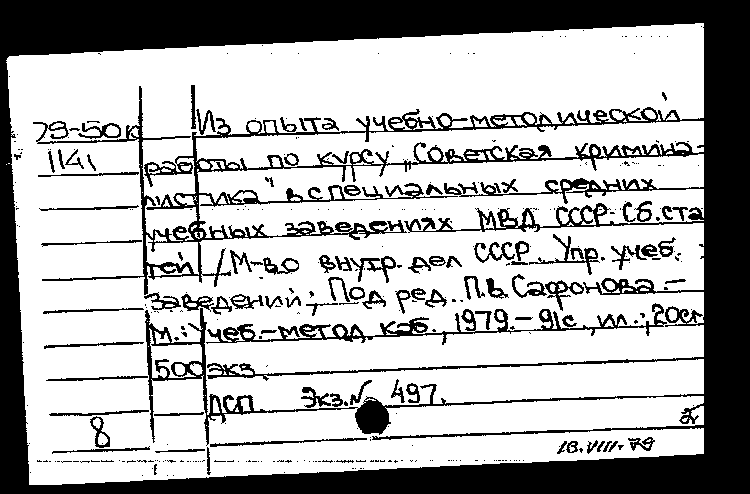 79-50к Из опыта учебно-методической
1141 работы по курсу „Советская кримина-
листика" в специальных средних
учебных заведениях МВД СССР: Сб. ста
тей / М-во внутр. дел СССР. Упр. учеб.
заведений; Под ред. П.В. Сафонова. –
М.: Учеб.-метод. каб., 1979. – 91с., ил.; 20см
500 экз.
ДСП. Экз.№ 497.
8
18.VIII-79